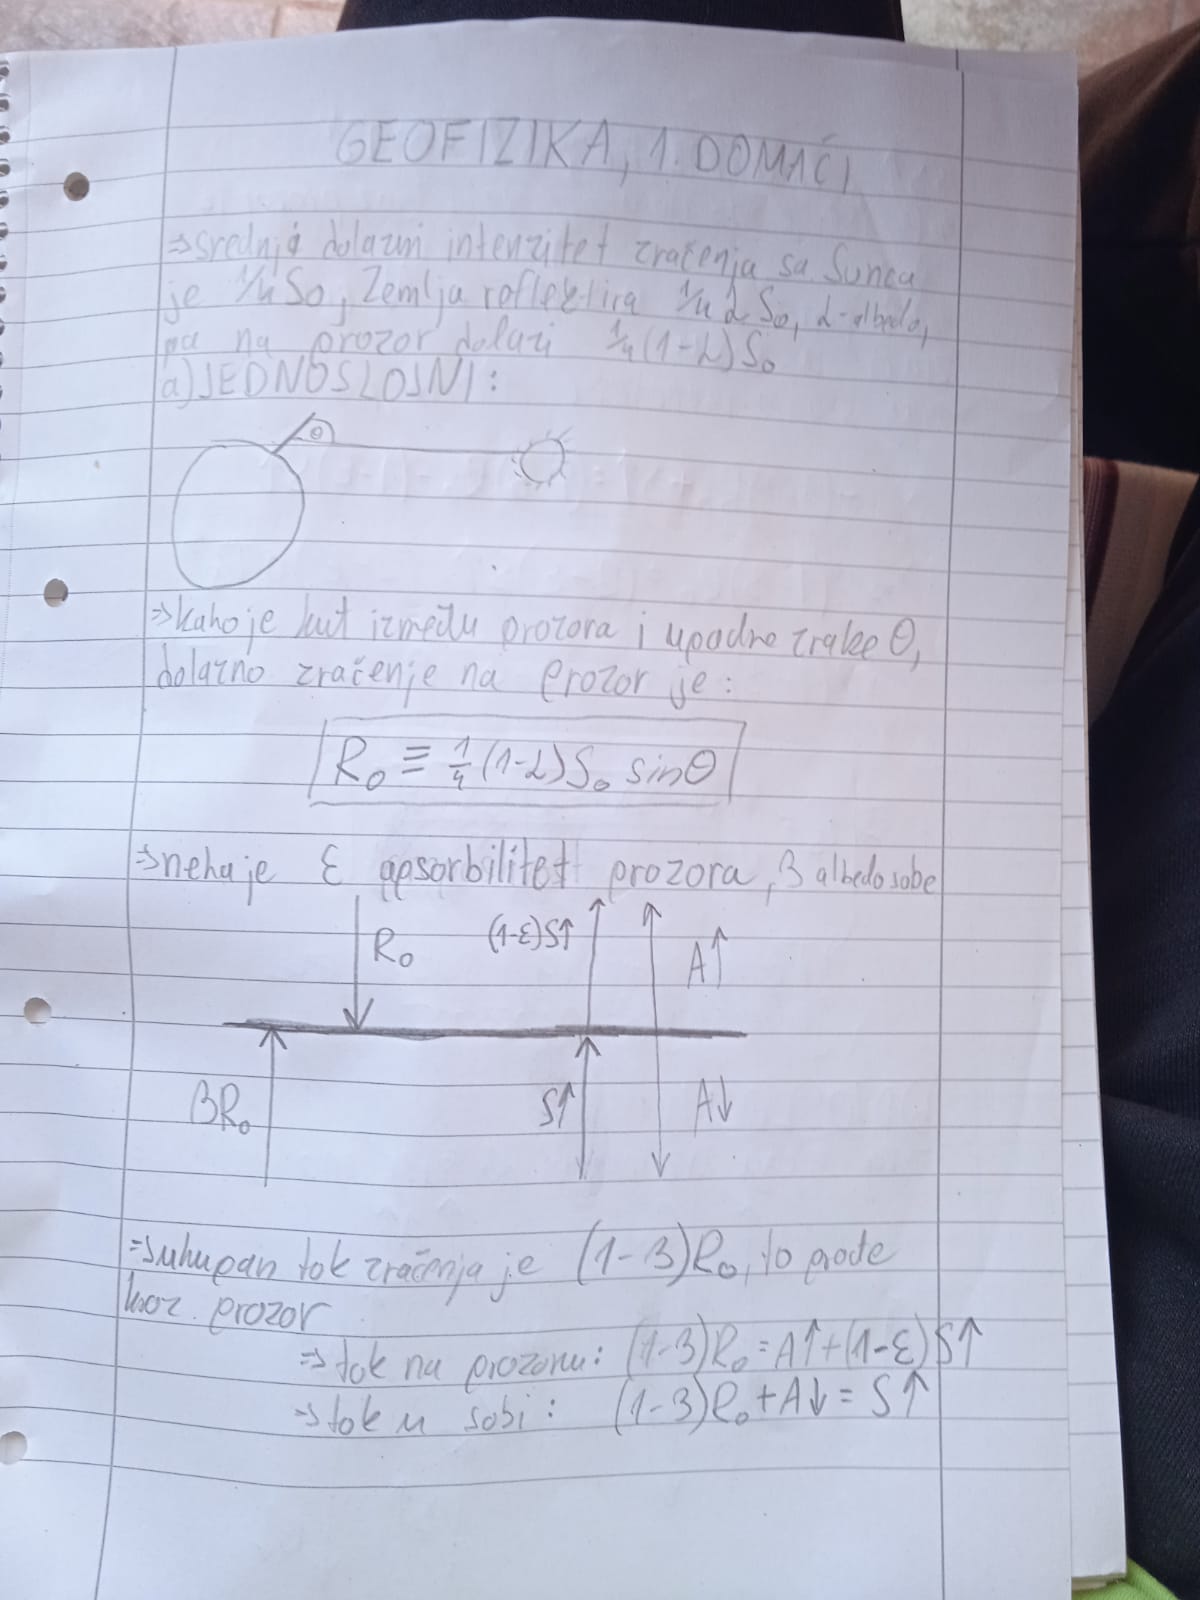 GEOFIZIKA, 1. DOMAĆI
⇒ srednji dolazni intenzitet zračenja sa Sunca
je 1/4 S₀, Zemlja reflektira 1/4 α S₀, α-albedo,
pa na prozor dolazi 1/4 (1-α) S₀
a) JEDNOSLOJNI:
Θ
⇒ kako je kut između prozora i upadne zrake Θ,
dolazno zračenje na prozor je:
R₀ ≡ 1/4 (1-α) S₀ sinΘ
⇒ neka je ε apsorbilitet prozora, β albedo sobe
R₀ (1-ε)S↑ A↑
βR₀ S↑ A↓
⇒ sukupan tok zračenja je (1-β)R₀, to prođe
kroz prozor
⇒ tok na prozoru: (1-β)R₀ = A↑ + (1-ε)S↑
⇒ tok u sobi: (1-β)R₀ + A↓ = S↑